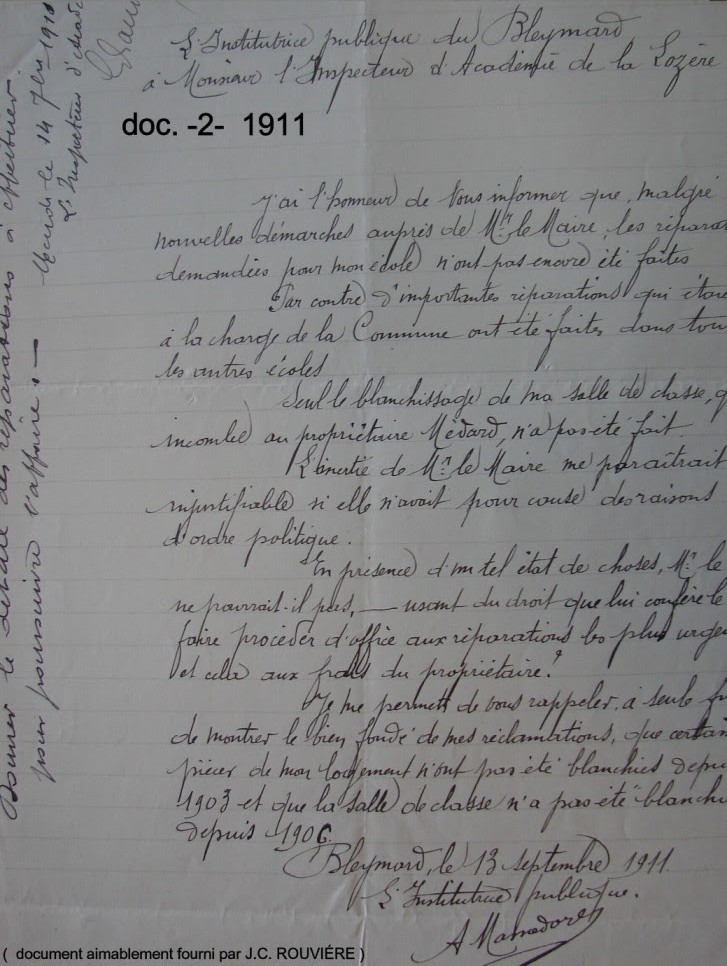 L'Institutrice publique du Bleymard
à Monsieur l'Inspecteur d'Académie de la Lozère
doc. -2- 1911
J'ai l'honneur de Vous informer que, malgré
nouvelles démarches auprès de Mr. le Maire, les répara
demandées pour mon école n'ont pas encore été faites
Par contre d'importantes réparations qui étai
à la charge de la Commune ont été faites dans tou
les autres écoles
Seul le blanchissage de ma salle de classe, q
incombe au propriétaire Médard, n'a pas été fait.
L'inertie de Mr. le Maire me paraîtrait
injustifiable si elle n'avait pour cause des raisons
d'ordre politique.
En présence d'un tel état de choses, Mr. le
ne pourrait-il pas, — usant du droit que lui confère le
faire procéder d'office aux réparations les plus urge
et cela aux frais du propriétaire?
Je me permets de vous rappeler, à seule fi
de montrer le bien fondé de mes réclamations, que certai
pièces de mon logement n'ont pas été blanchies depui
1903 et que la salle de classe n'a pas été blanchi
depuis 1906.
Bleymard, le 13 septembre 1911.
L'Institutrice publique.
Donner le détail des réparations à effectuer
pour poursuivre l'affaire. —
Mende le 14 7bre
L'Inspecteur d'Acad
( document aimablement fourni par J.C. ROUVIÉRE )